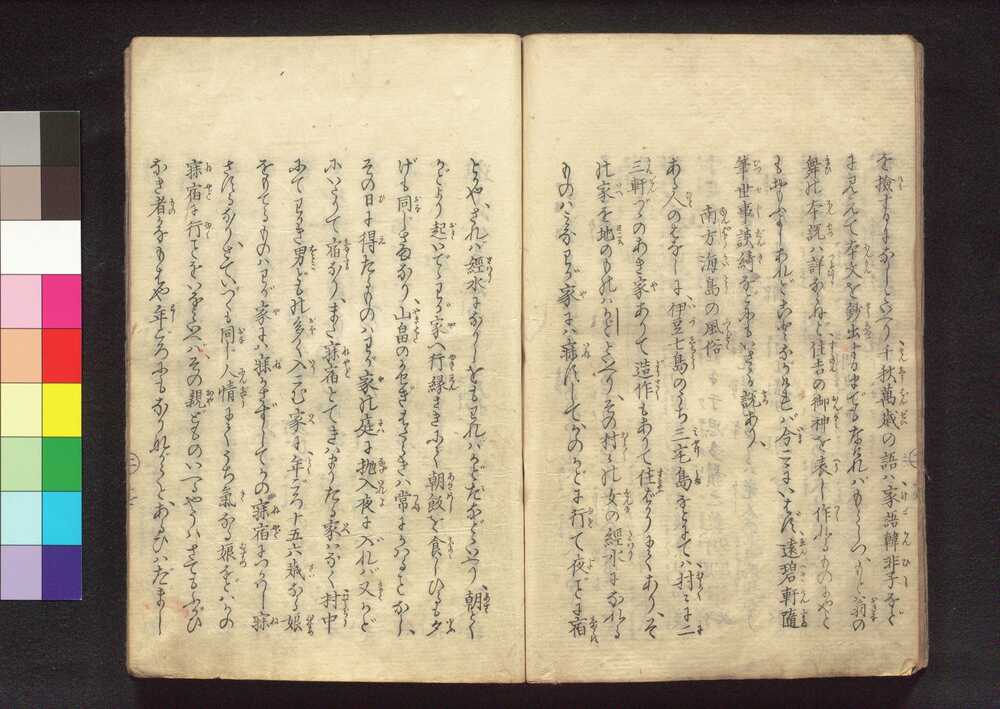 を撿するになしといへり千秋萬歳の語ハ家語韓非子など
に見えて本文を鈔出するまでも
舞の本説ハ詳ならねど住吉の御神を表し作れるものにやと
今こゝにいはず遠碧軒隨
筆世事談綺などにもいさゝか説あり
南方海島の風俗
ある人のはなしに伊豆七島のうち三宅島などにてハ村々に二
三軒づゝのあき家ありて造作もありて住ばかりにしてあり、そ
の家を地のものハかどといへり、その村々の女の經水になれる
ものハミなわが家にハ寐ずしてかのかどに行て夜ごと宿
とかや、されバ經水になりしをもわれハかどだなどといへり、朝とく
かどより起いでわが家へ行縁さきにて朝飯を食し、ひるも夕
げも同じさまなり、山畠のかせぎはたらきハ常にかハることなし、
その日に得たるものハわが家の庭に抛入夜に入れバ又かど
にいたりて宿なり、また寐宿とてきはまりたる家ハなく村中
にてわかき男どもの多く入こむ家に年ごろ十五六歳なる娘
をもてるものハわが家にハ寐かさずしてかの寐宿につかハし寐
さするなり、さていづくも同じ人情にてうち氣なる娘などハかの
寐宿に行ことをいなといへバ、その親どものいへるやうハさてもふがひ
なき者かなもはや年ごろにもなりながらと、あるひハだまし